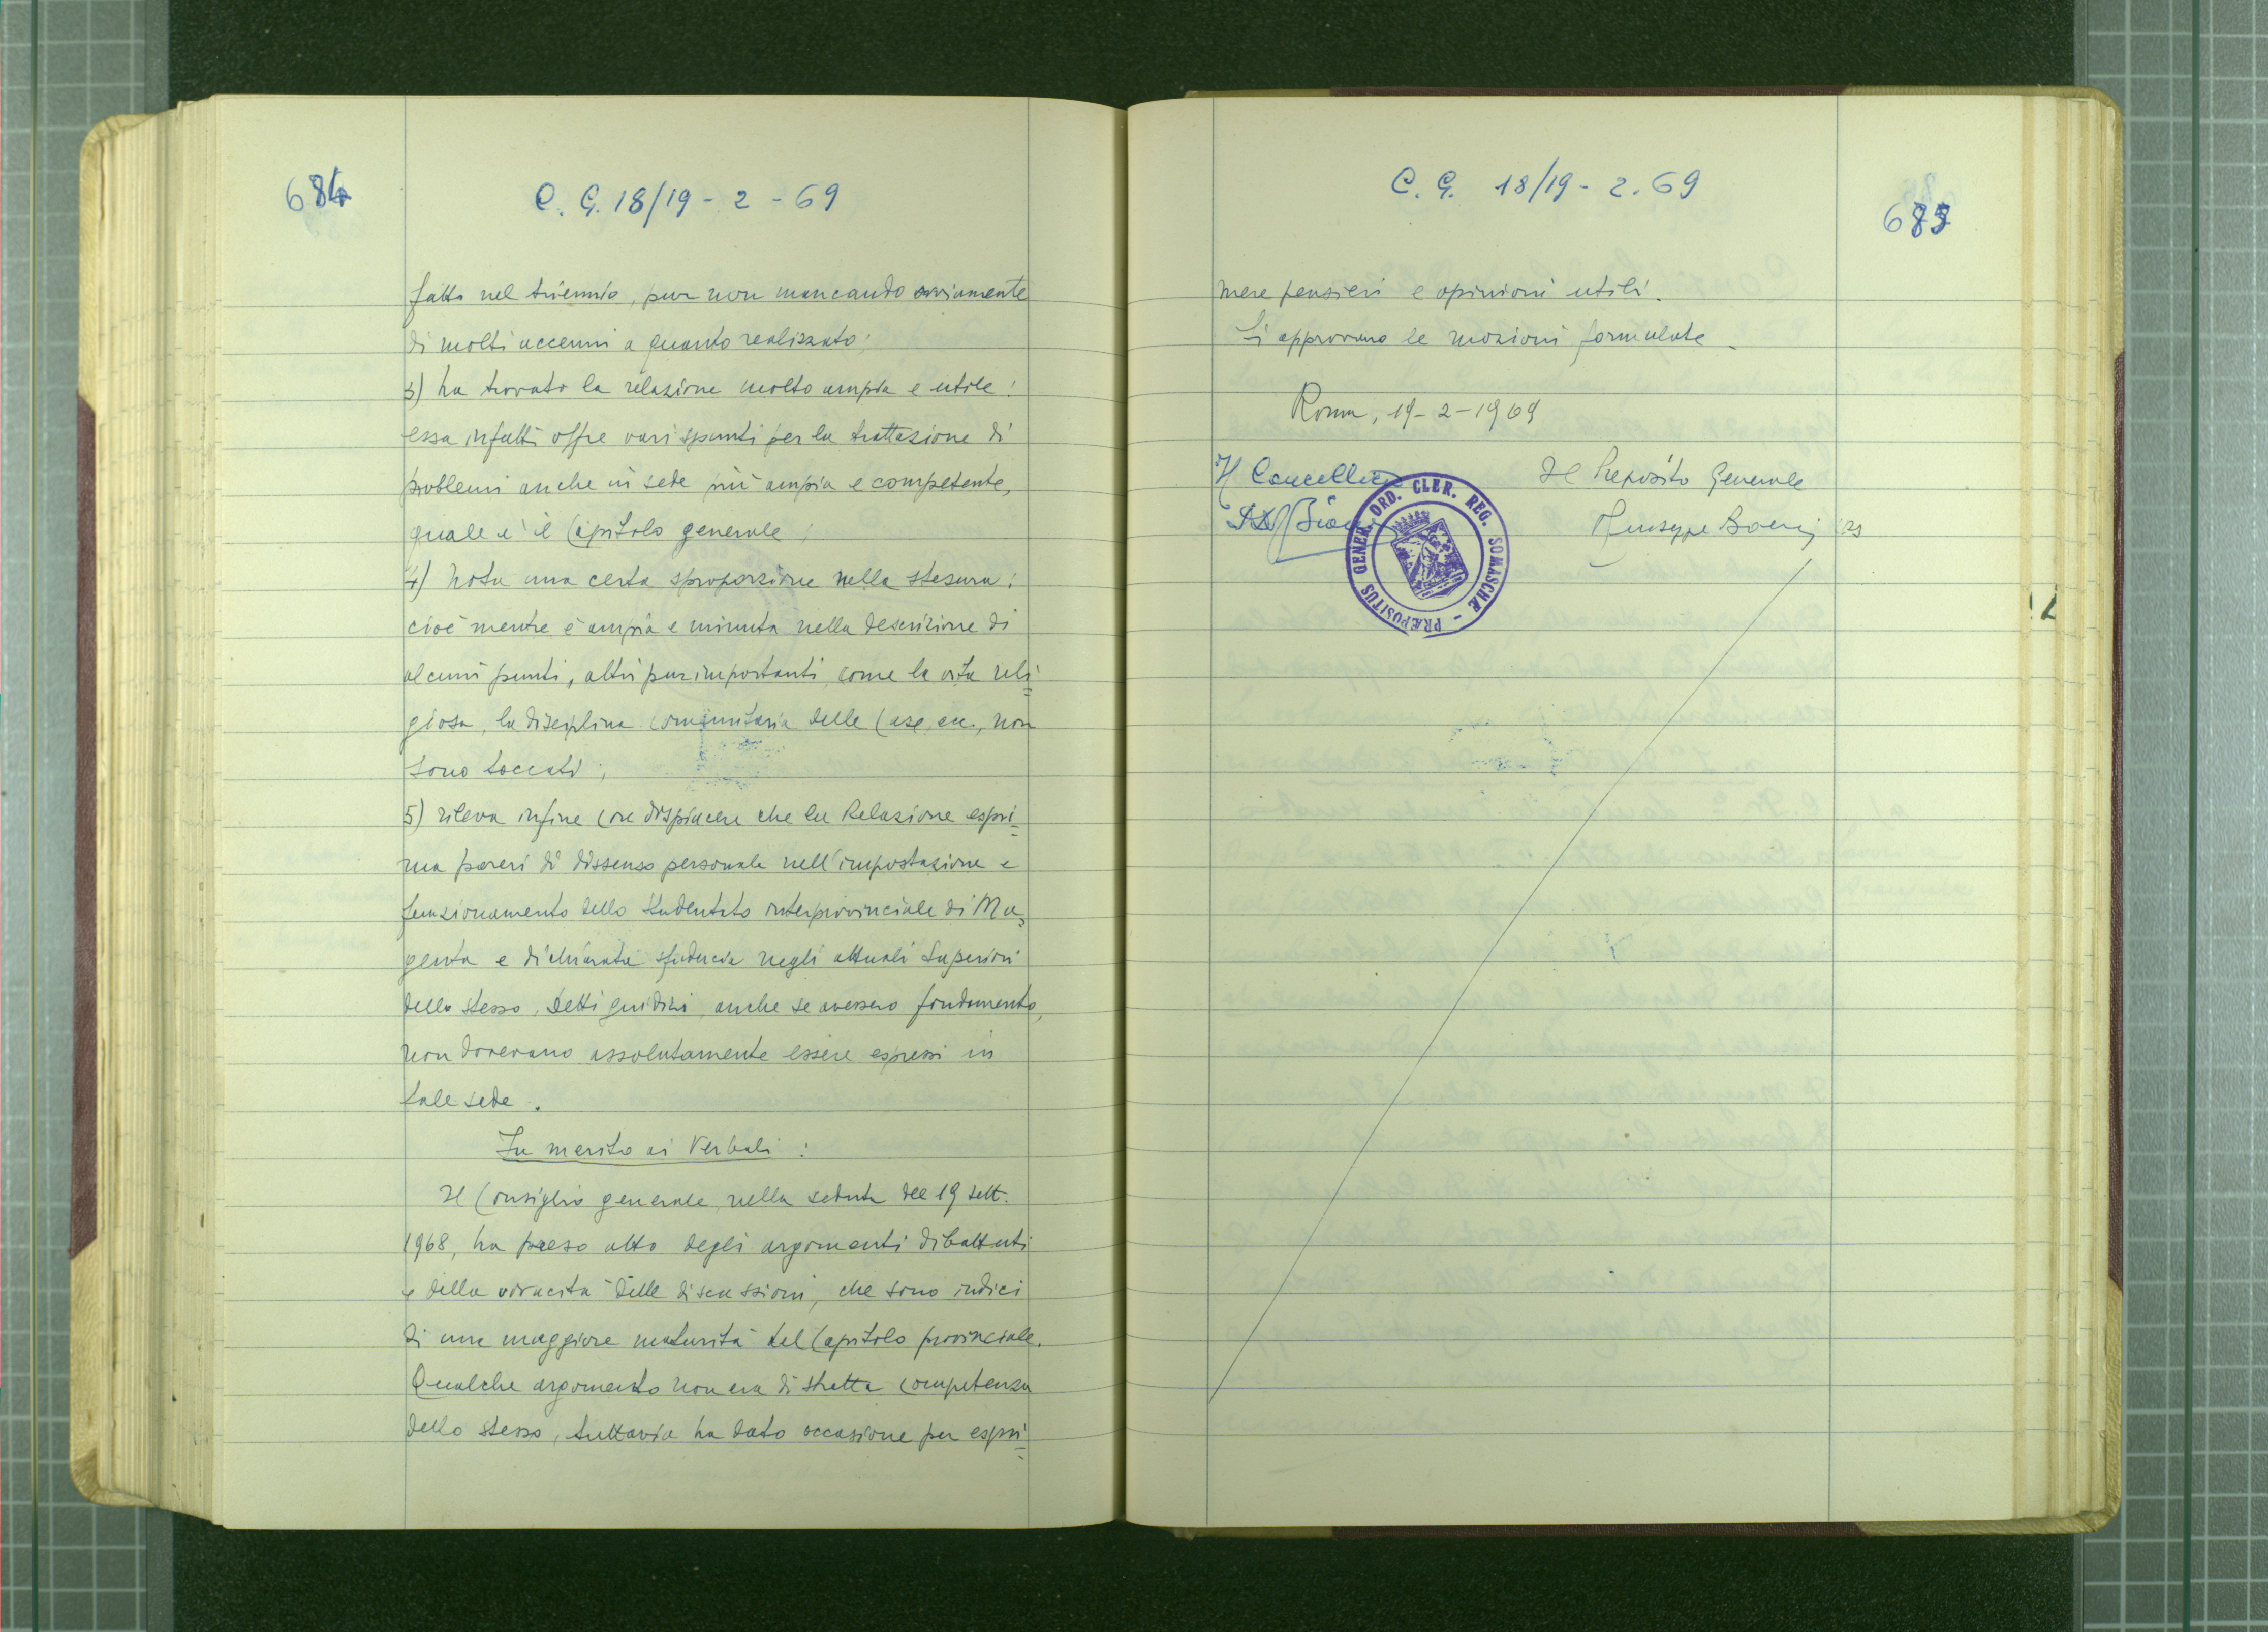 684
C. G. 18/19 - 2 - 69
fatto nel triennio, pur non mancando ovviamente
di molti accenni a quanto realizzato;
3) ha trovato la relazione molto ampia e utile:
essa infatti offre vari spunti per la trattazione di
problemi anche in sede più ampia e competente,
quale è il Capitolo generale;
4) nota una certa sproporzione nella stesura:
cioè mentre è ampia e minuta nella descrizione di
alcuni punti, altri pur importanti, come la vita reli=
giosa, la disciplina comunitaria delle Case, ecc., non
sono toccati;
5) rileva infine con dispiacere che la Relazione espri=
ma pareri di dissenso personale nell'impostazione e
funzionamento dello Studentato interprovinciale di Ma=
genta e dichiarata sfiducia negli attuali Superiori
dello stesso. Detti giudizi, anche se avessero fondamento,
non dovevano assolutamente essere espressi in
tale sede.
In merito ai Verbali:
Il Consiglio generale, nella seduta del 19 sett.
1968, ha preso atto degli argomenti dibattuti
e della vivacità delle discussioni, che sono indici
di una maggiore maturità del Capitolo provinciale.
Qualche argomento non era di stretta competenza
dello stesso, tuttavia ha dato occasione per espri=
C. G. 18/19 - 2. 69
685
mere pensieri e opinioni utili.
Si approvano le mozioni formulate.
Roma, 19-2-1969
Il Cancelliere
Il Preposito Generale
Giuseppe Boeris crs
PRÆPOSITUS GENER. ORD. CLER. REG. SOMASCHÆ